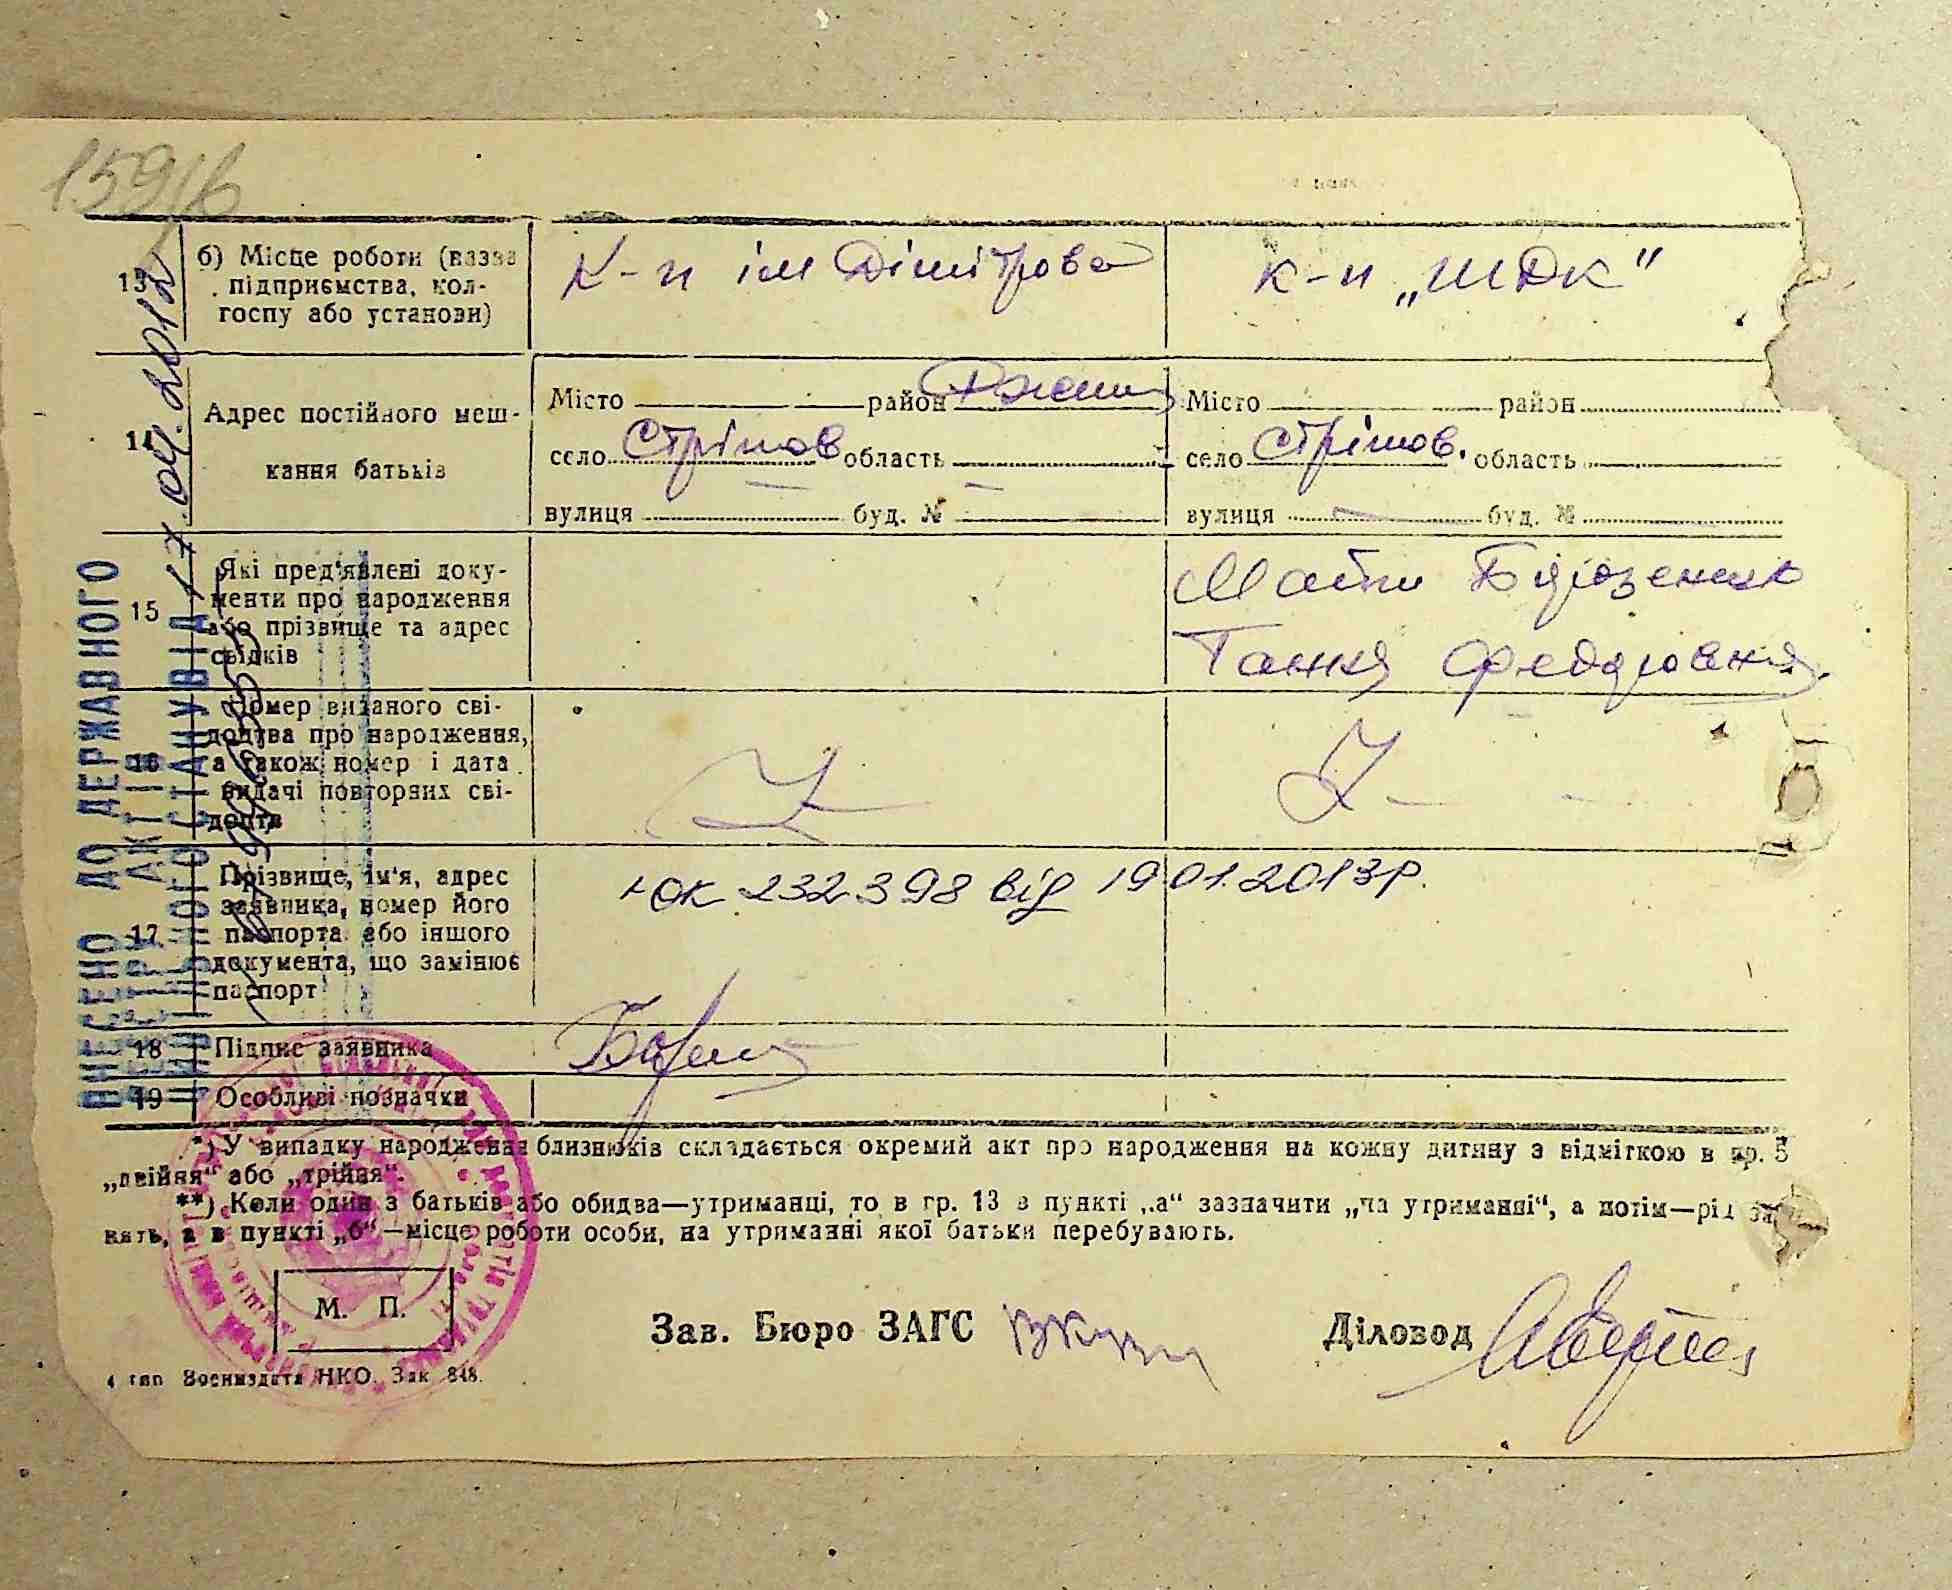 159/6
13
б) Місце роботи (назва
підприємства, кол-
госпу або установи)
К-п ім Дімітрова
К-п „ШДК"
14
Адрес постійного меш-
кання батьків
Місто район
село Стрімов область
вулиця буд. №
Місто район
село Стрімов. область
вулиця буд. №
15
Які пред'явлені доку-
менти про народження
або прізвище та адрес
свідків
Ганна
16
Номер виданого сві-
доцтва про народження,
а також номер і дата
видачі повторних сві-
доцтв
17
Прізвище, ім'я, адрес
заявника, номер його
паспорта або іншого
документа, що замінює
паспорт
ІОК 232398 від 19.01.2013р.
18
Підпис заявника
19
Особливі позначки
ВНЕСЕНО ДО ДЕРЖАВНОГО
РЕЄСТРУ АКТІВ
ЦИВІЛЬНОГО СТАНУ
17.04.2012
*) У випадку народження близнюків складається окремий акт про народження на кожну дитину з відміткою в гр. 5
„двійня" або „трійня".
**) Коли один з батьків або обидва—утриманці, то в гр. 13 в пункті „а" зазначити „на утриманні", а потім—рід за-
нять, а в пункті „б"—місце роботи особи, на утриманні якої батьки перебувають.
М. П.
Зав. Бюро ЗАГС
Діловод
4 тип Воениздата НКО. Зак 848.